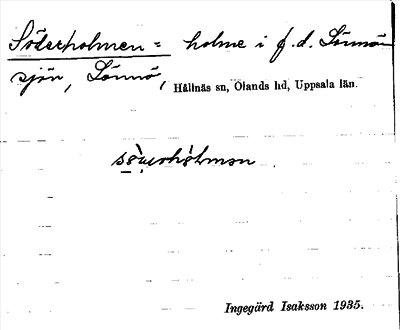 Söderholmen = holme i f.d. Lönnö
sjön, Lönnö, Hållnäs sn, Ölands hd, Uppsala län.
Ingegärd Isaksson 1935.